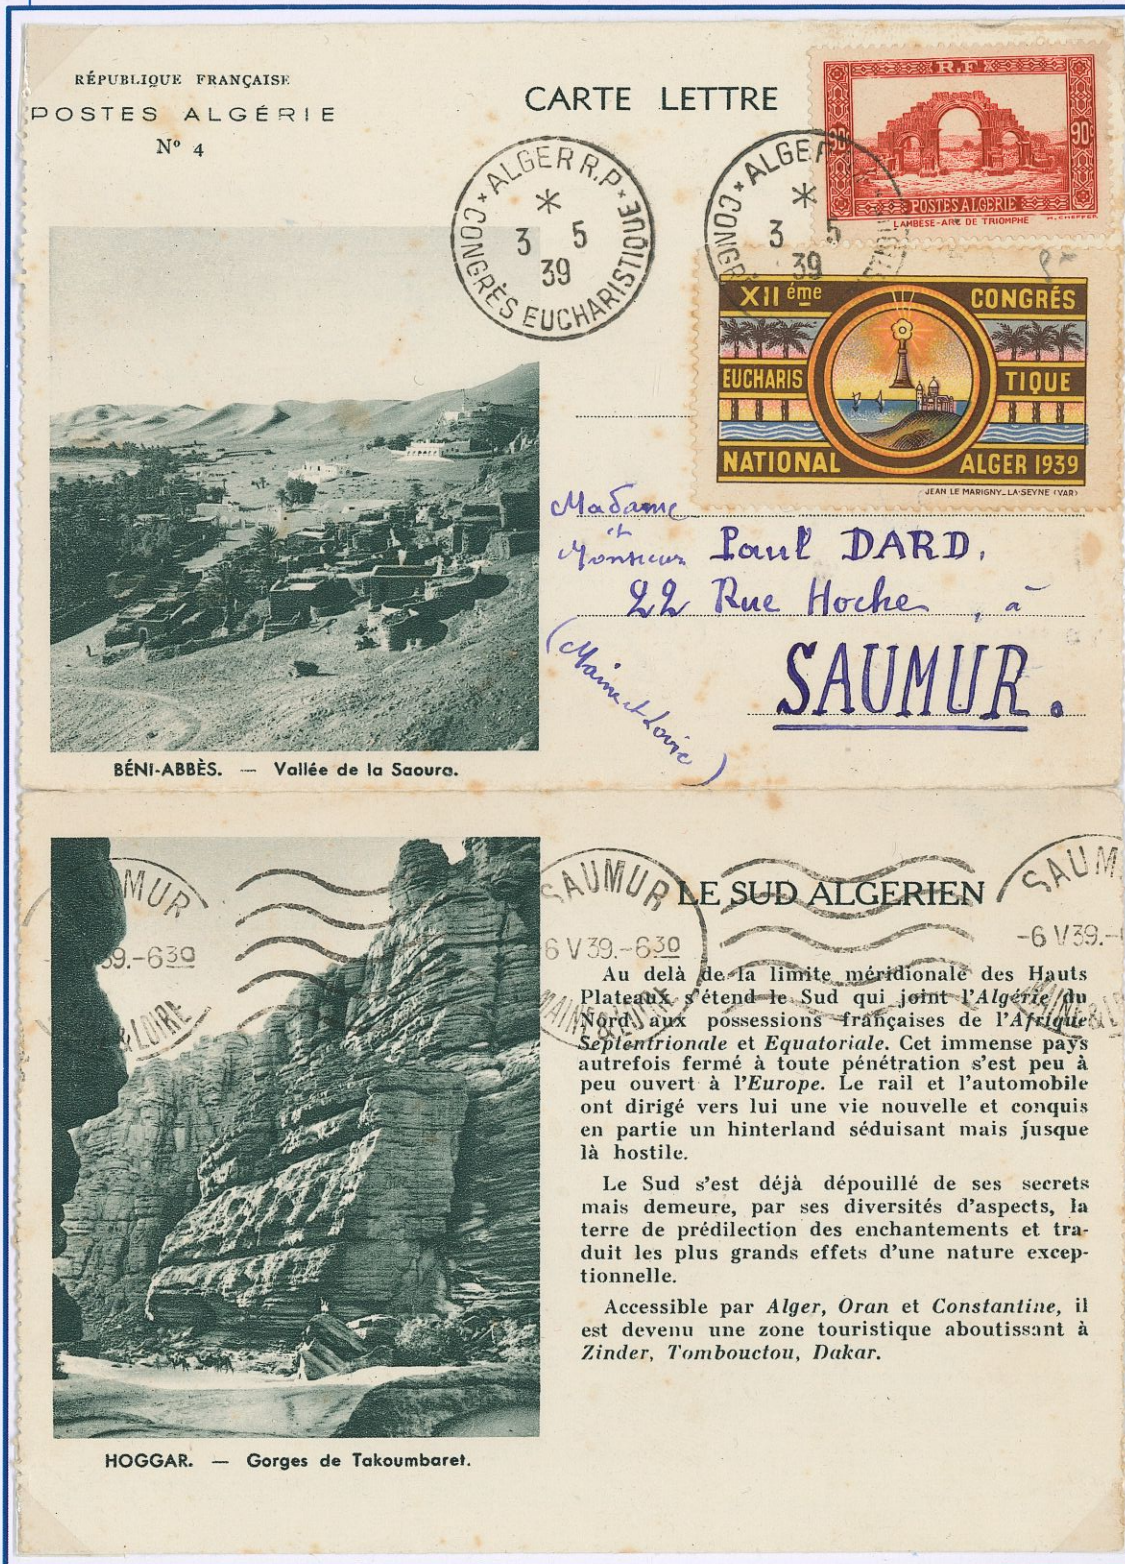 RÉPUBLIQUE FRANÇAISE
POSTES ALGÉRIE
Nº 4
CARTE LETTRE
R.F
90c 90c
POSTES ALGERIE
LAMBÈSE-ARC DE TRIOMPHE
ALGER R.P
CONGRÈS EUCHARISTIQUE
3 5
39
ALGER
CONGRÈS
3 5
39
XIIéme CONGRÉS
EUCHARISTIQUE
NATIONAL ALGER 1939
JEAN LE MARIGNY_LA-SEYNE (VAR)
Madame
et
Monsieur Paul DARD,
22 Rue Hoche, à
SAUMUR.
(Maine et Loire)
BÉNI-ABBÈS. — Vallée de la Saoura.
SAUMUR
6 V 39.-630
MAINE & LOIRE
LE SUD ALGERIEN
Au delà de la limite méridionale des Hauts
Plateaux s'étend le Sud qui joint l'Algérie du
Nord aux possessions françaises de l'Afrique
Septentrionale et Equatoriale. Cet immense pays
autrefois fermé à toute pénétration s'est peu à
peu ouvert à l'Europe. Le rail et l'automobile
ont dirigé vers lui une vie nouvelle et conquis
en partie un hinterland séduisant mais jusque
là hostile.
Le Sud s'est déjà dépouillé de ses secrets
mais demeure, par ses diversités d'aspects, la
terre de prédilection des enchantements et tra-
duit les plus grands effets d'une nature excep-
tionnelle.
Accessible par Alger, Oran et Constantine, il
est devenu une zone touristique aboutissant à
Zinder, Tombouctou, Dakar.
HOGGAR. — Gorges de Takoumbaret.